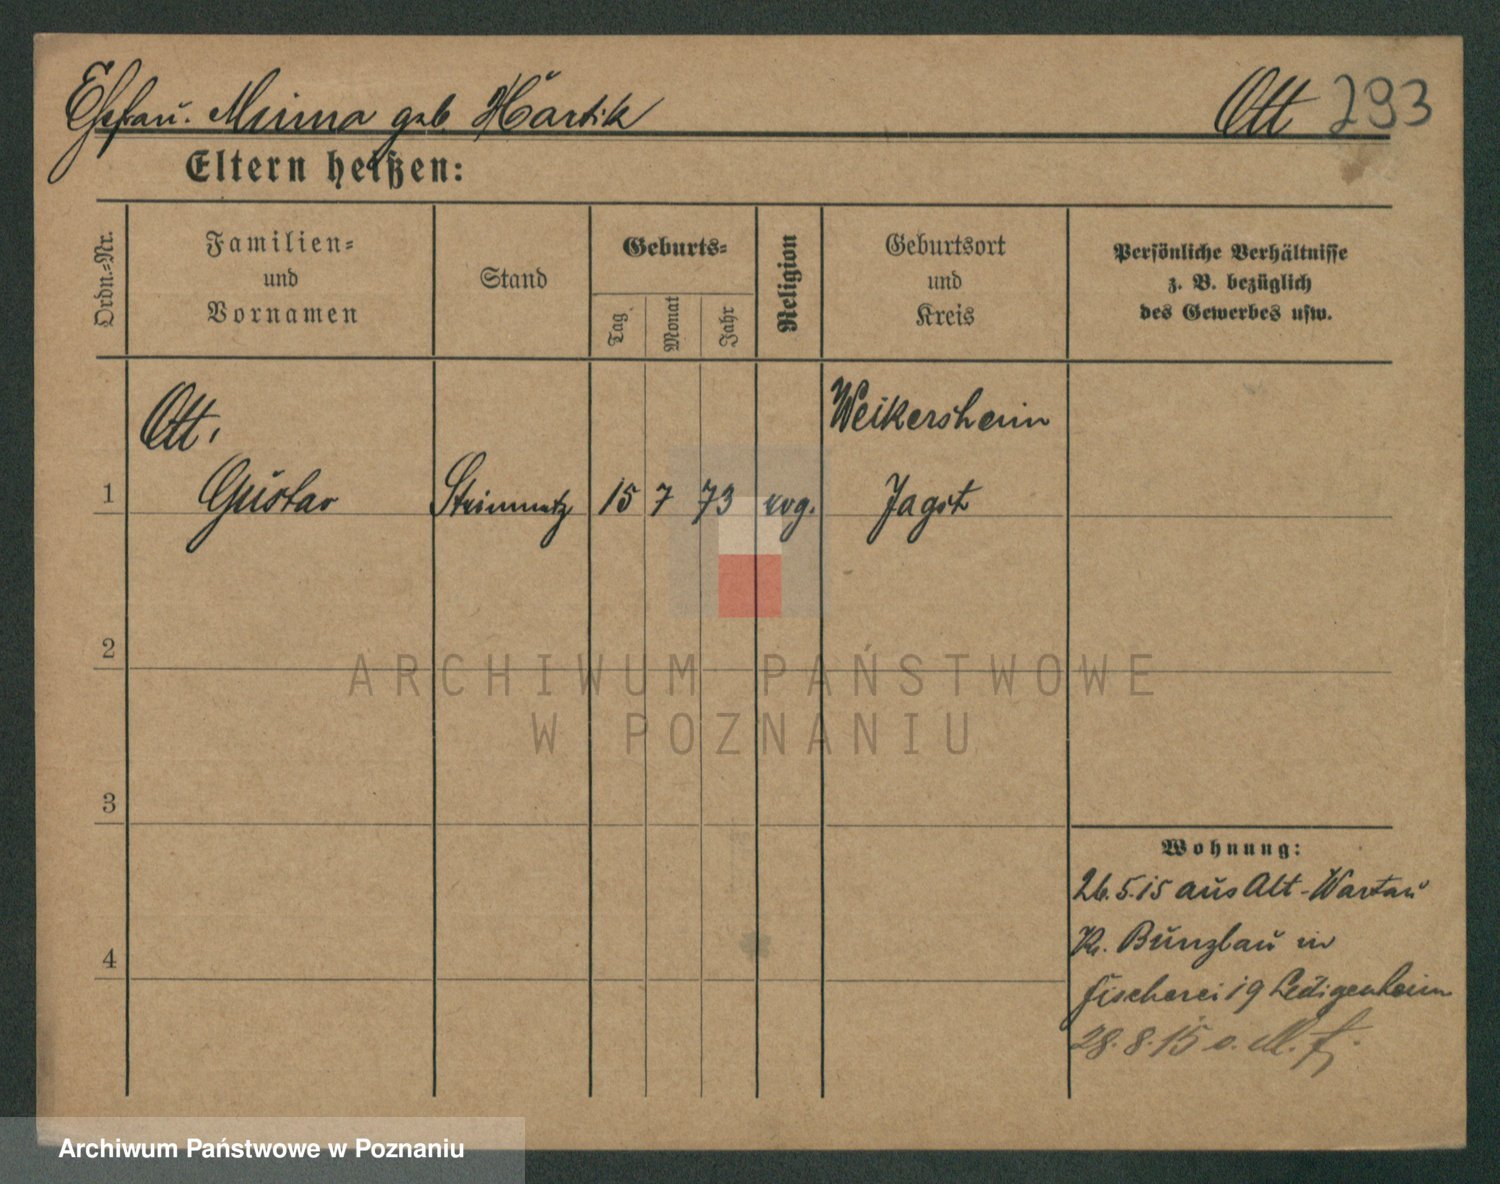 Ehefrau. Minna geb. Hartik
Ott 293
Eltern heißen:
Ordn.=Nr.
Familien=
und
Vornamen
Stand
Geburts=
Tag
Monat
Jahr
Religion
Geburtsort
und
Kreis
Persönliche Verhältnisse
z. B. bezüglich
des Gewerbes usw.
Ott,
Weikersheim
1 Gustav Steinmetz 15 7 73 evg. Jagst
2
ARCHIWUM PAŃSTWOWE
W POZNANIU
3
Wohnung:
26.5.15 aus Alt-Wartau
Kr. Bunzlau in
4
Fischerei 19 Ledigenheim
28.8.15
Archiwum Państwowe w Poznaniu